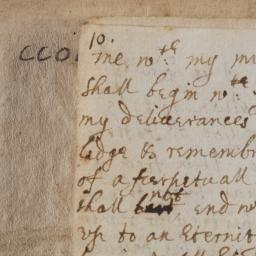 10.
ccoi
me wth my mu
shall begin wth
my deliverances
ledge & remembr
of a perpetuall
not
shall end w
vp to an Eternit